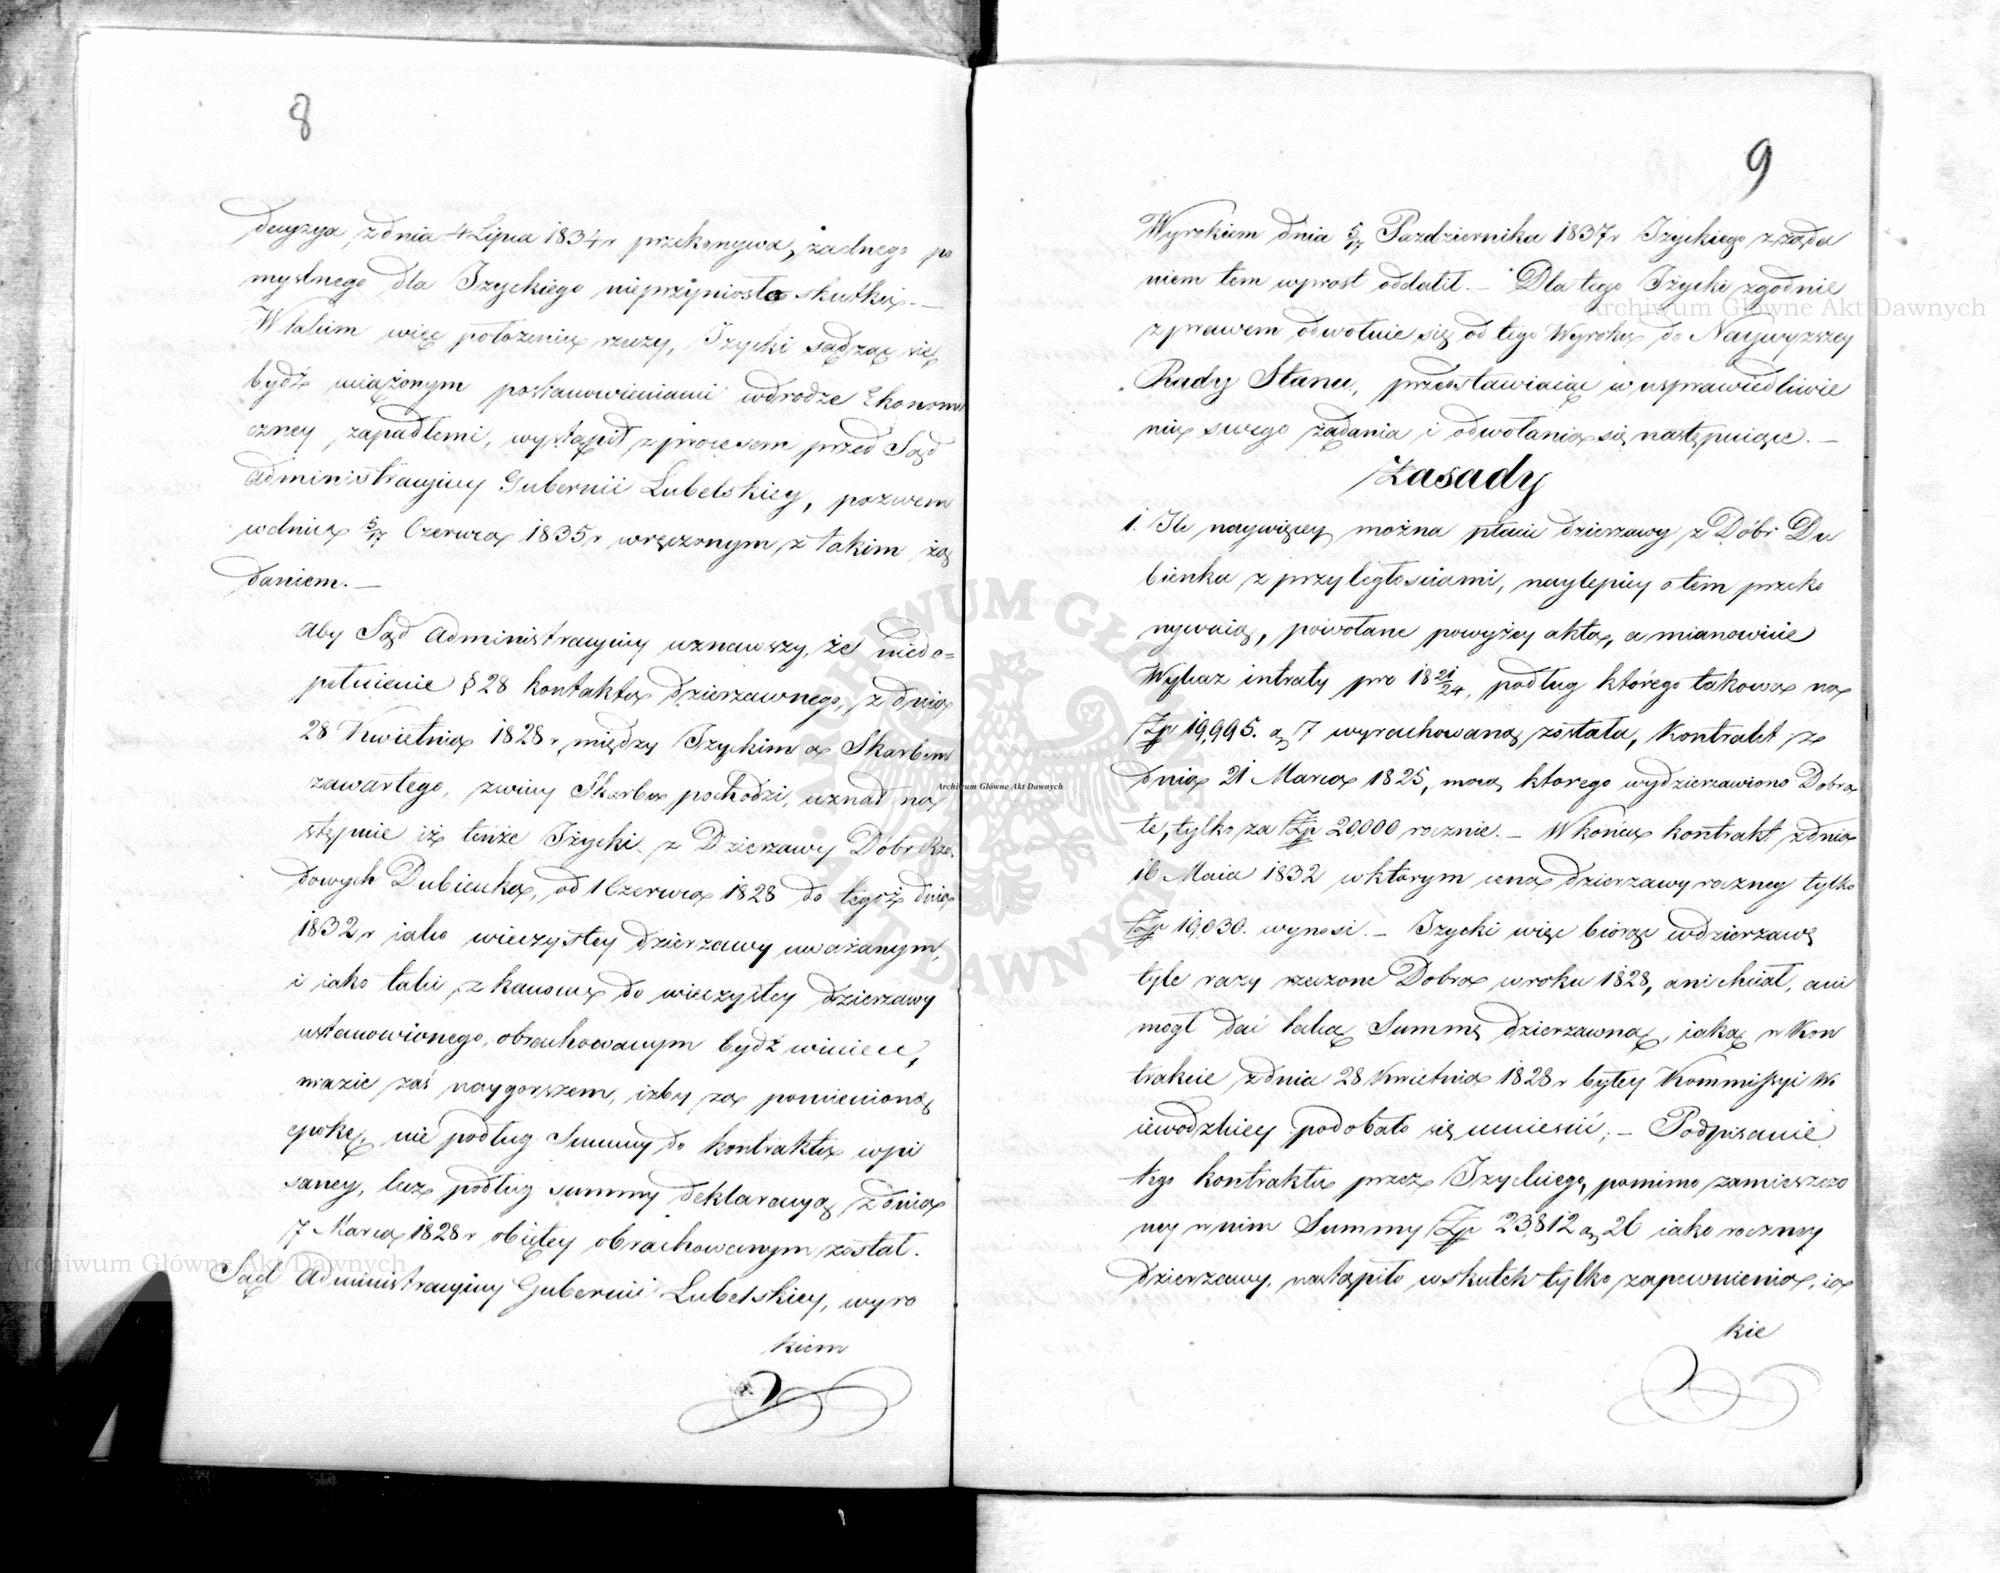 8
decyzya z dnia 4 Lipca 1834 r przekonywa, żadnego po
myslnego dla Iżyckiego nieprzyniosła skutku. —
W takim więc położeniu rzeczy, Iżycki sądząc się
bydź uciążonym postanowieniami w drodze Ekonomi
czney zapadłemi, wystąpił z processem przed Sąd
Administracyjny Gubernii Lubelskiey, pozwem
w dniu 5/17 Czerwca 1835 r wręczonym z takim żą
daniem. —
Aby Sąd Administracyiny uznawszy, że niedo=
pełnienie § 28 kontaktu dzierzawnego, z dnia
28 Kwietnia 1828 r, między Iżyckim a Skarbem
zawartego, z winy Skarbu pochodzi, uznał na
stępnie iż tenże Iżycki z Dzierzawy Dóbr Rzą
dowych Dubienka, od 1 Czerwca 1828 do tegoż dnia
1832 r iako wieczystey dzierzawy uważanym,
i iako taki z kanonu do wieczystey dzierzawy
ustanowionego, obrachowanym bydź winien,
w razie zaś naygorszem, iżby za pomienioną
epokę, nie podług Summy do kontraktu wpi
saney, lecz podług summy deklaracyą z dnia
7 Marca 1828 r obiętey obrachowanym został.
Sąd Administracyiny Gubernii Lubelskiey, wyro
kiem
9
Wyrokiem dnia 5/17 Pazdziernika 1837 r Iżyckiego z żąda
niem tem wprost oddalił. — Dla tego Iżycki zgodnie
z prawem odwołuie się od tego Wyroku do Naywyższey
Rady Stanu, przedstawiaiąc w usprawiedliwie
niu swego żądania i odwołania się następuiące. —
Zasady
1. Ile naywięcey można płacić dzierzawy z Dóbr Du
bienka z przyległościami, naylepiey o tem przeko
nywaią, powołane powyżey akta, a mianowicie
Wykaz intraty pro 18 21/24, podług którego takowa na
Zp 19,995. g 7 wyrachowaną została, Kontrakt z
dnia 21 Marca 1825, mocą ktorego wydzierzawiono Dobra
te, tylko za Zp 20,000 rocznie. — W końcu kontrakt z dnia
16 Maia 1832 w którym cena dzierzawy roczney tylko
Zp 19,030. wynosi. — Iżycki więc biorąc w dzierzawę
tyle razy rzeczone Dobra w roku 1828, ani chciał, ani
mogł dać taką Summę dzierzawną, iaką w Kon
trakcie z dnia 28 Kwietnia 1828 r byłey Kommissyi Wo
iewodzkiey podobało się umieścić; — Podpisanie
tego kontraktu przez Iżyckiego, pomimo zamieszczo
ney w nim Summy Zp 23,812 g 26 iako roczney
dzierzawy, nastąpiło w skutek tylko zapewnienia, ia
kie
Archiwum Główne Akt Dawnych
Archiwum Główne Akt Dawnych
Archiwum Główne Akt Dawnych
ARCHIWUM GŁÓWNE AKT DAWNYCH